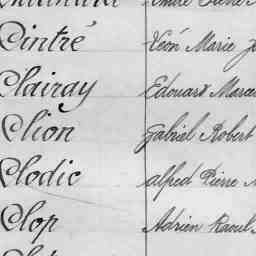 Cintré Léon Marie
Clairay Edouard Marcel
Clion Gabriel Robert
Clodic alfred Pierre
Clop Adrien Raoul